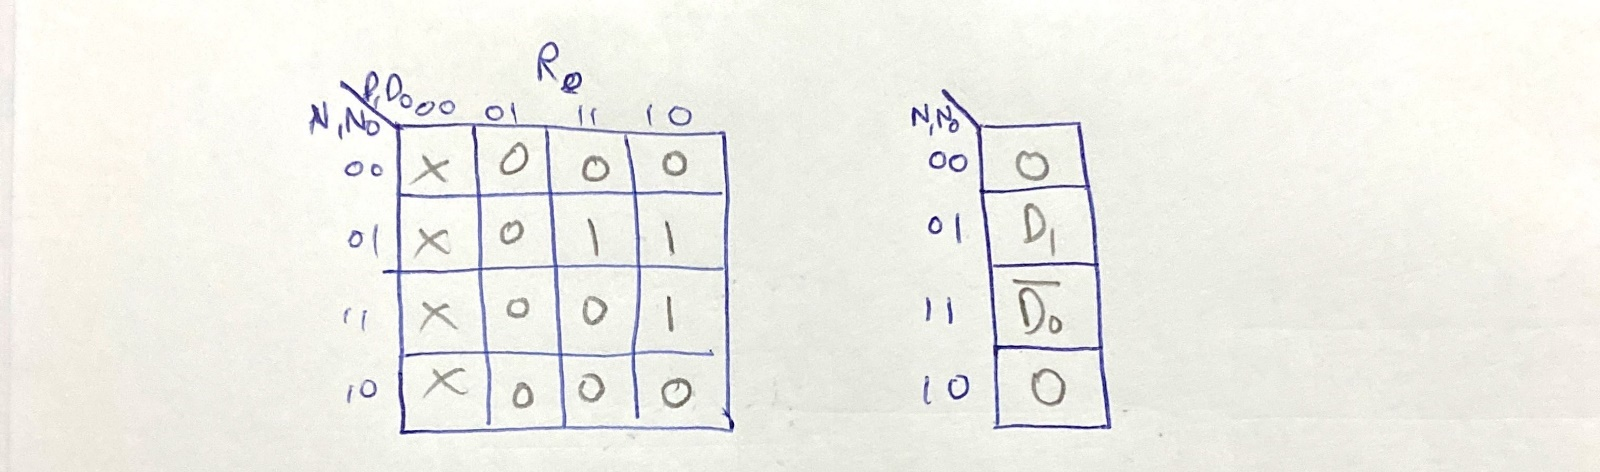 R0
D1D0 00 01 11 10
N1N0
00 X 0 0 0
01 X 0 1 1
11 X 0 0 1
10 X 0 0 0
N1N0
00 0
01 D1
11 D̅0
10 0